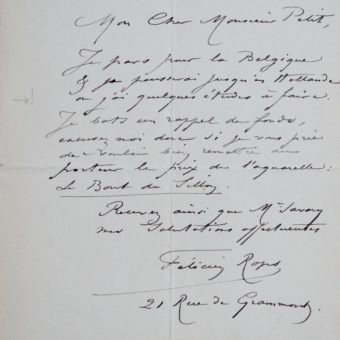 Mon Cher Monsieur Petit,
Je pars pour la Belgique
& je pousserai jusqu'en Hollande
où j'ai quelques études à faire.
Je bats un rappel de fonds,
excusez moi donc si je vous prie
de vouloir bien remettre au
porteur le prix de l'aquarelle:
Le Bout du Sillon.
Recevez ainsi que Mr Savary
mes Salutations affectueuses
Félicien Rops
21 Rue de Grammont.